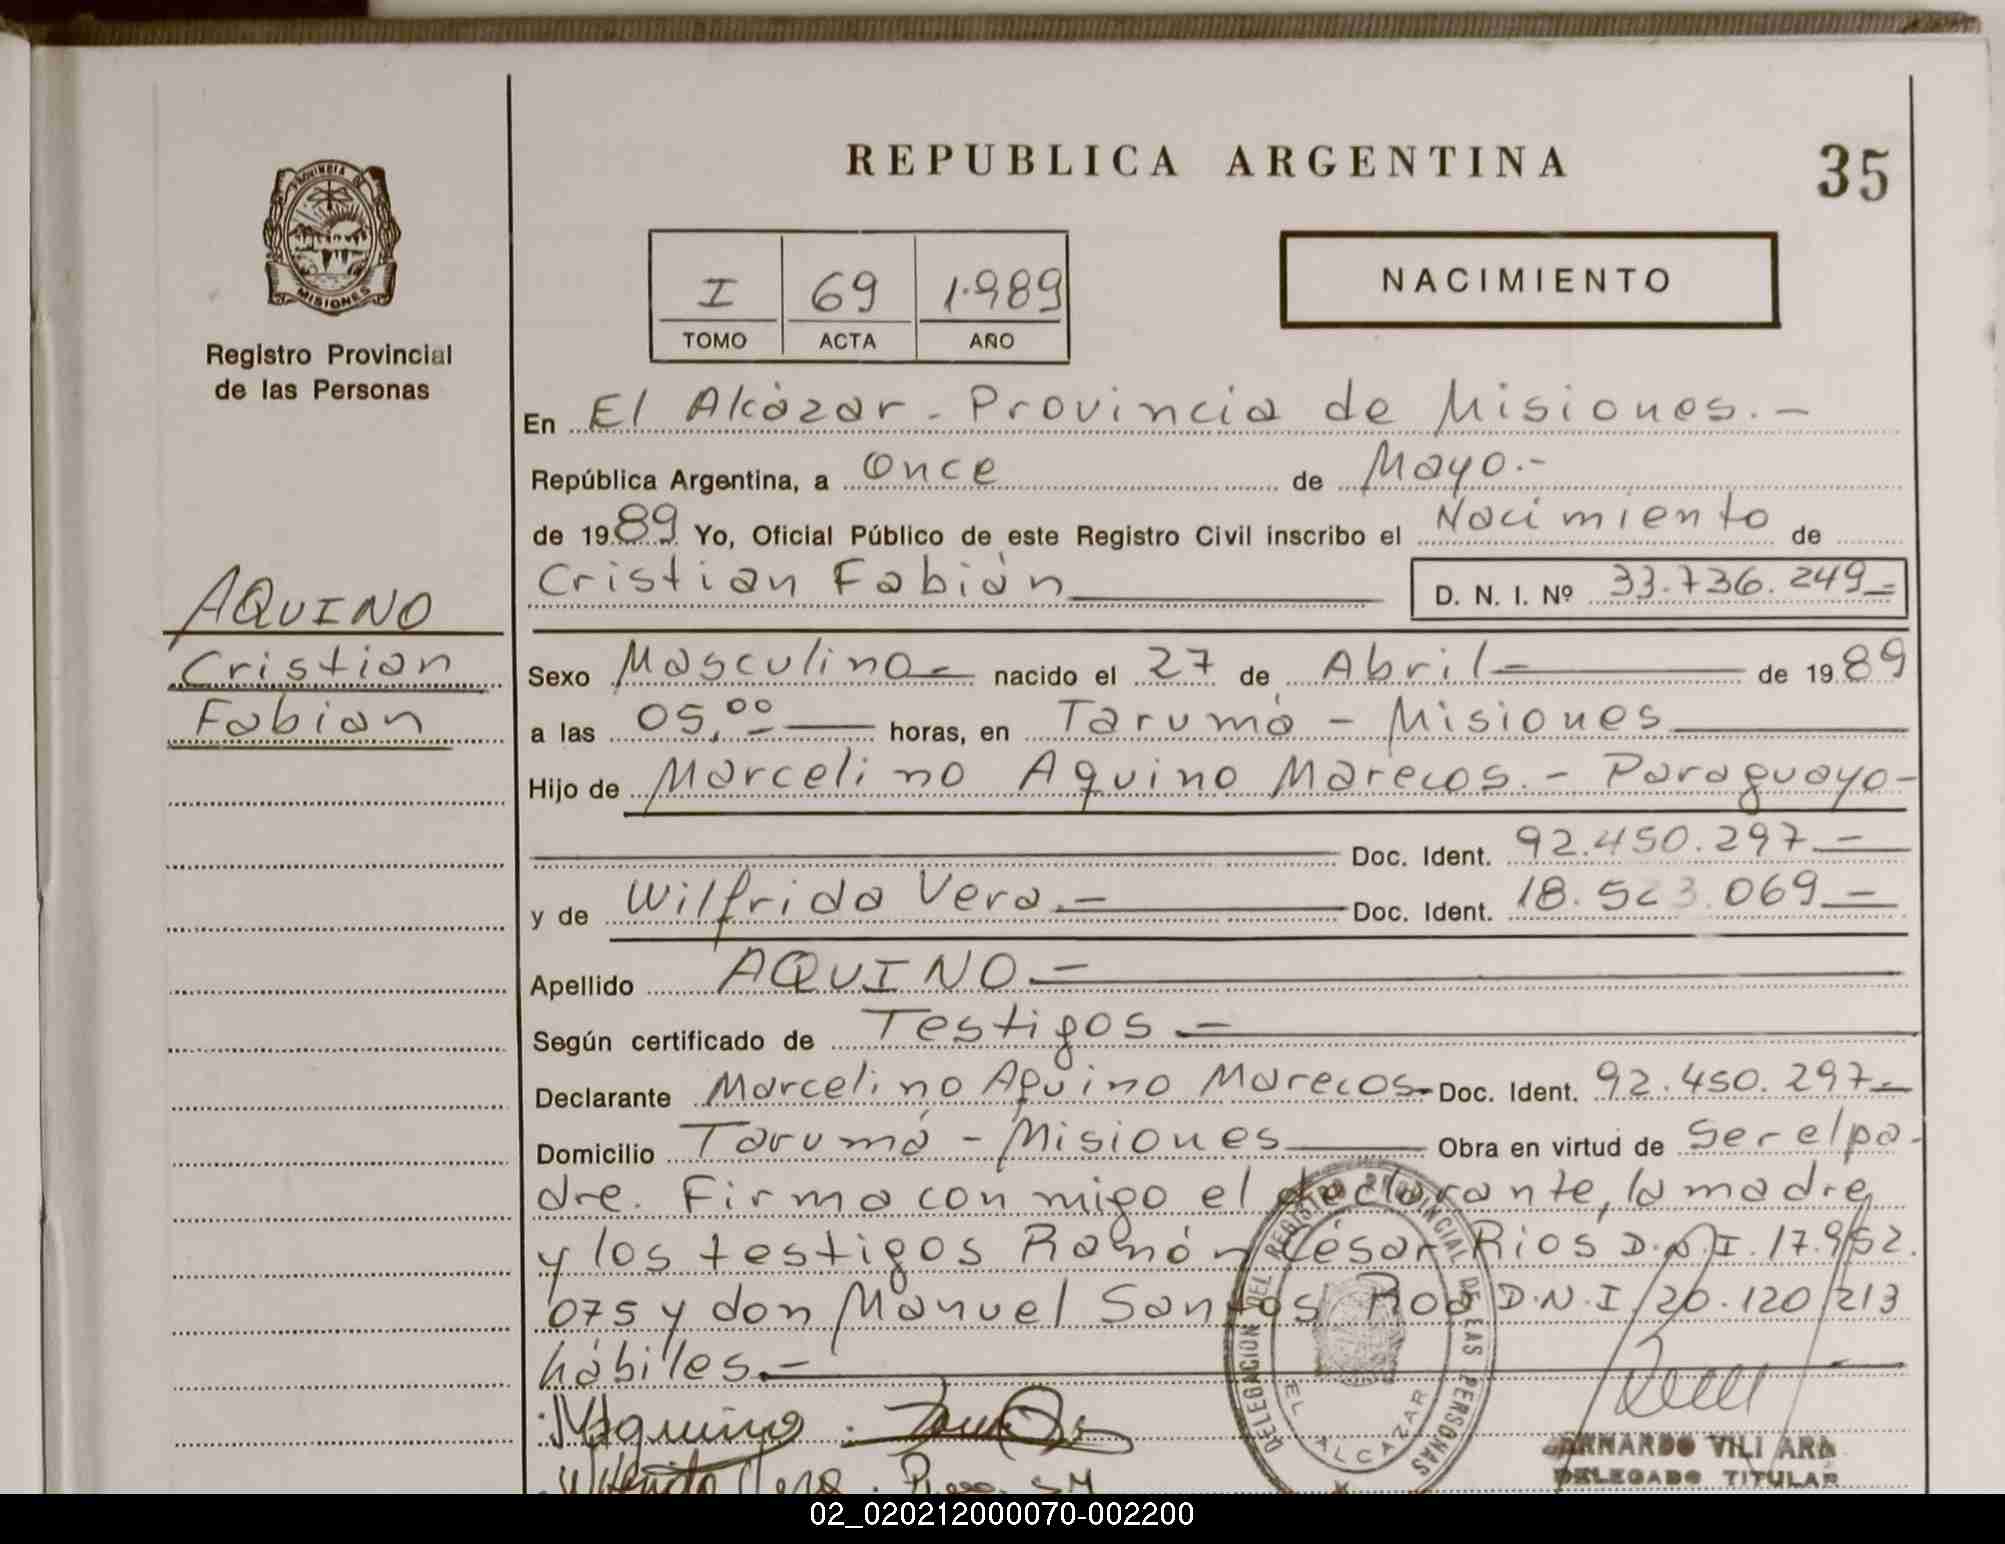 REPUBLICA ARGENTINA
35
PROVINCIA DE
MISIONES
Registro Provincial
de las Personas
I 69 1.989
TOMO ACTA AÑO
NACIMIENTO
En El Alcázar - Provincia de Misiones.-
República Argentina, a Once de Mayo.-
de 1989 Yo, Oficial Público de este Registro Civil inscribo el Nacimiento de
Cristian Fabián D. N. I. Nº 33.736.249-
AQUINO
Cristian
Fabian
Sexo Masculino- nacido el 27 de Abril- de 1989
a las 05,00 horas, en Tarumá - Misiones
Hijo de Marcelino Aquino Marecos.- Paraguayo-
Doc. Ident. 92.450.297-
y de Wilfrida Vera.- Doc. Ident. 18.523.069-
Apellido AQUINO-
Según certificado de Testigos.-
Declarante Marcelino Aquino Marecos- Doc. Ident. 92.450.297-
Domicilio Tarumá - Misiones Obra en virtud de ser el pa-
dre. Firma con migo el declarante, la madre
y los testigos Ramón César Rios D.N.I. 17.952.
075 y don Manuel Santos Roa D.N.I. 20.120.213
hábiles.-
DELEGACION DEL REGISTRO PROVINCIAL DE LAS PERSONAS
EL ALCAZAR
MAquino
Wilfrida Vera
DELEGADO TITULAR
02_020212000070-002200